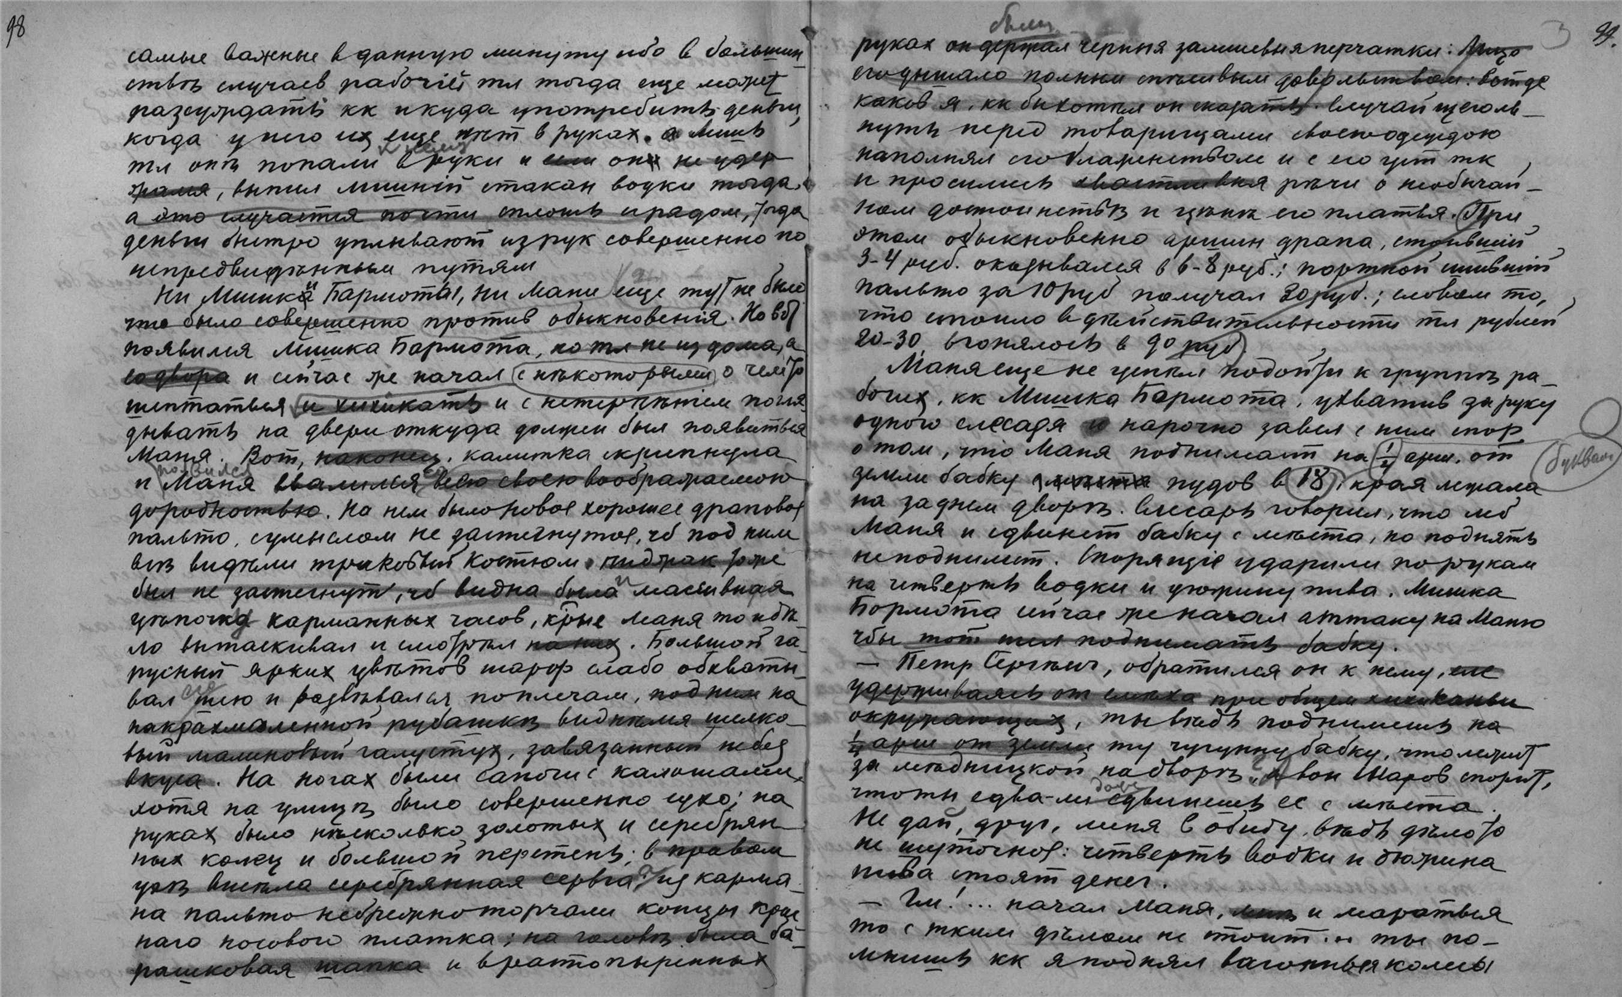 98
самые важные в данную минуту ибо в большин-
ствѣ случаев рабочій тл тогда еще может
разсуждать кк и куда употребить деньги,
когда у него их еще нѣт в руках. а лишь
тл онѣ попали в руки и если он их не удер
жался, выпил лишній стакан водки тогда,
а это случается почти сплошь и рядом, тогда
деньги быстро уплывают из рук совершенно по
непредвидѣнным путям
Ни Мишки Бармоты, ни Мани еще тут не было
что было совершенно против обыкновенія. Но вот
появился Мишка Бармота, но тл не из дома, а
со двора и сейчас же начал с нѣкоторыми о чем то
шептаться и хихикать и с нетерпѣнием погля
дывать на двери откуда должен был появиться
Маня. Вот, наконец, калитка скрипнула
появился
и Маня ввалился со всею своею воображаемою
дородностью. На нем было новое хорошее драповое
пальто, с умыслом не застегнутое, чб под ним
всѣ видѣли триковый костюм, пиджак тоже
был не застегнут, чб видна была и массивная
цѣпочка карманных часов, крые Маня то и дѣ
ло вытаскивал и смотрѣл на них. Большой га-
русный ярких цвѣтов шарф слабо обхваты-
вал его шею и развѣвался по плечам, под ним на
накрахмаленной рубашкѣ виднѣлся шелко-
вый малиновый галустух, завязанный не без
вкуса. На ногах были сапоги с калошами,
хотя на улицѣ было совершенно сухо; на
руках было нѣсколько золотых и серебрян-
ных колец и большой перстень; в правом
ухѣ висѣла серебрянная серьга; из карма-
на пальто небрежно торчали концы крас
наго носового платка; на головѣ была ба-
рашковая шапка и в растопыренных
3 99.
были
руках он держал черныя замшевыя перчатки. Лицо
его дышало полным спѣсивым довольством: вот де
каков я, кк бы хотѣл он сказать. Случай щеголь-
нуть перед товарищами своею одеждою
наполнял его блаженством и с его уст тк
и просились хвастливыя рѣчи о необычай-
ном достоинствѣ и цѣнѣ его платья. При
этом обыкновенно аршин драпа, стоивший
3-4 руб. оказывался в 6-8 руб.; портной шивший
пальто за 10 руб получал 20 руб.; словом то,
что стоило в дѣйствительности тл рублей
20-30 вгонялось в 90 руб
Маня еще не успѣл подойти к группѣ ра-
бочих, кк Мишка Бармота, ухватив за руку
одного слесаря и нарочно завел с ним спор
о том, что Маня поднимает на 1/4 арш. от
буквами
земли бабку пудов в 18, края лежала
на заднем дворѣ. Слесарь говорил, что либ
Маня и сдвинет бабку с мѣста, но поднять
не поднимет. Спорящіе ударили по рукам
на четверть водки и дюжину пива. Мишка
Бормота сейчас же начал аттаку на Маню
чбы тот шел поднимать бабку.
— Петр Сергѣич, обратился он к нему, еле
удерживаясь от смѣха при общем хихиканьи
окружающих, ты вѣдь поднимешь на
1/4 арш от земли ту чугунну бабку, что лежит
за мѣдницкой на дворѣ. А вон Шаров спорит,
что ты едва-ли даже сдвинешь ее с мѣста.
Не дай, друг, меня в обиду, вѣдь дѣло то
не шуточное: четверть водки и дюжина
пива стоят денег.
— Гм!... начал Маня, и мараться
то с тким дѣлом не стоит. ты по-
мнишь кк я поднял вагонныя колесы